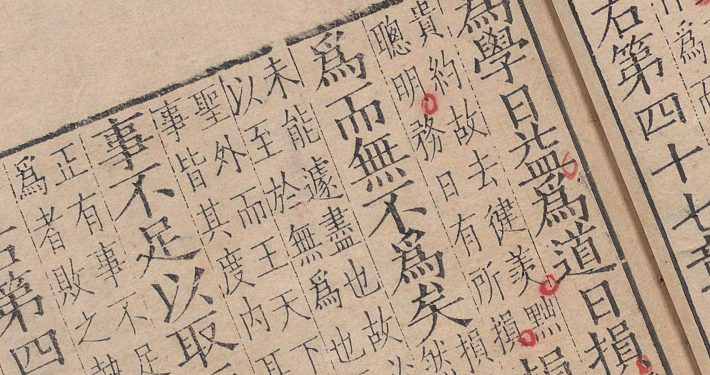 作爲而
右第四十七章
爲學日益爲道日損
貴約故去健羨黜
聰明務日有所損損
爲而無不爲矣
然
未能遽盡也故必
以至於無爲也
聖外而王天下
事皆其度内耳
事不足以取
正有事不足
爲者敗之執
右第四